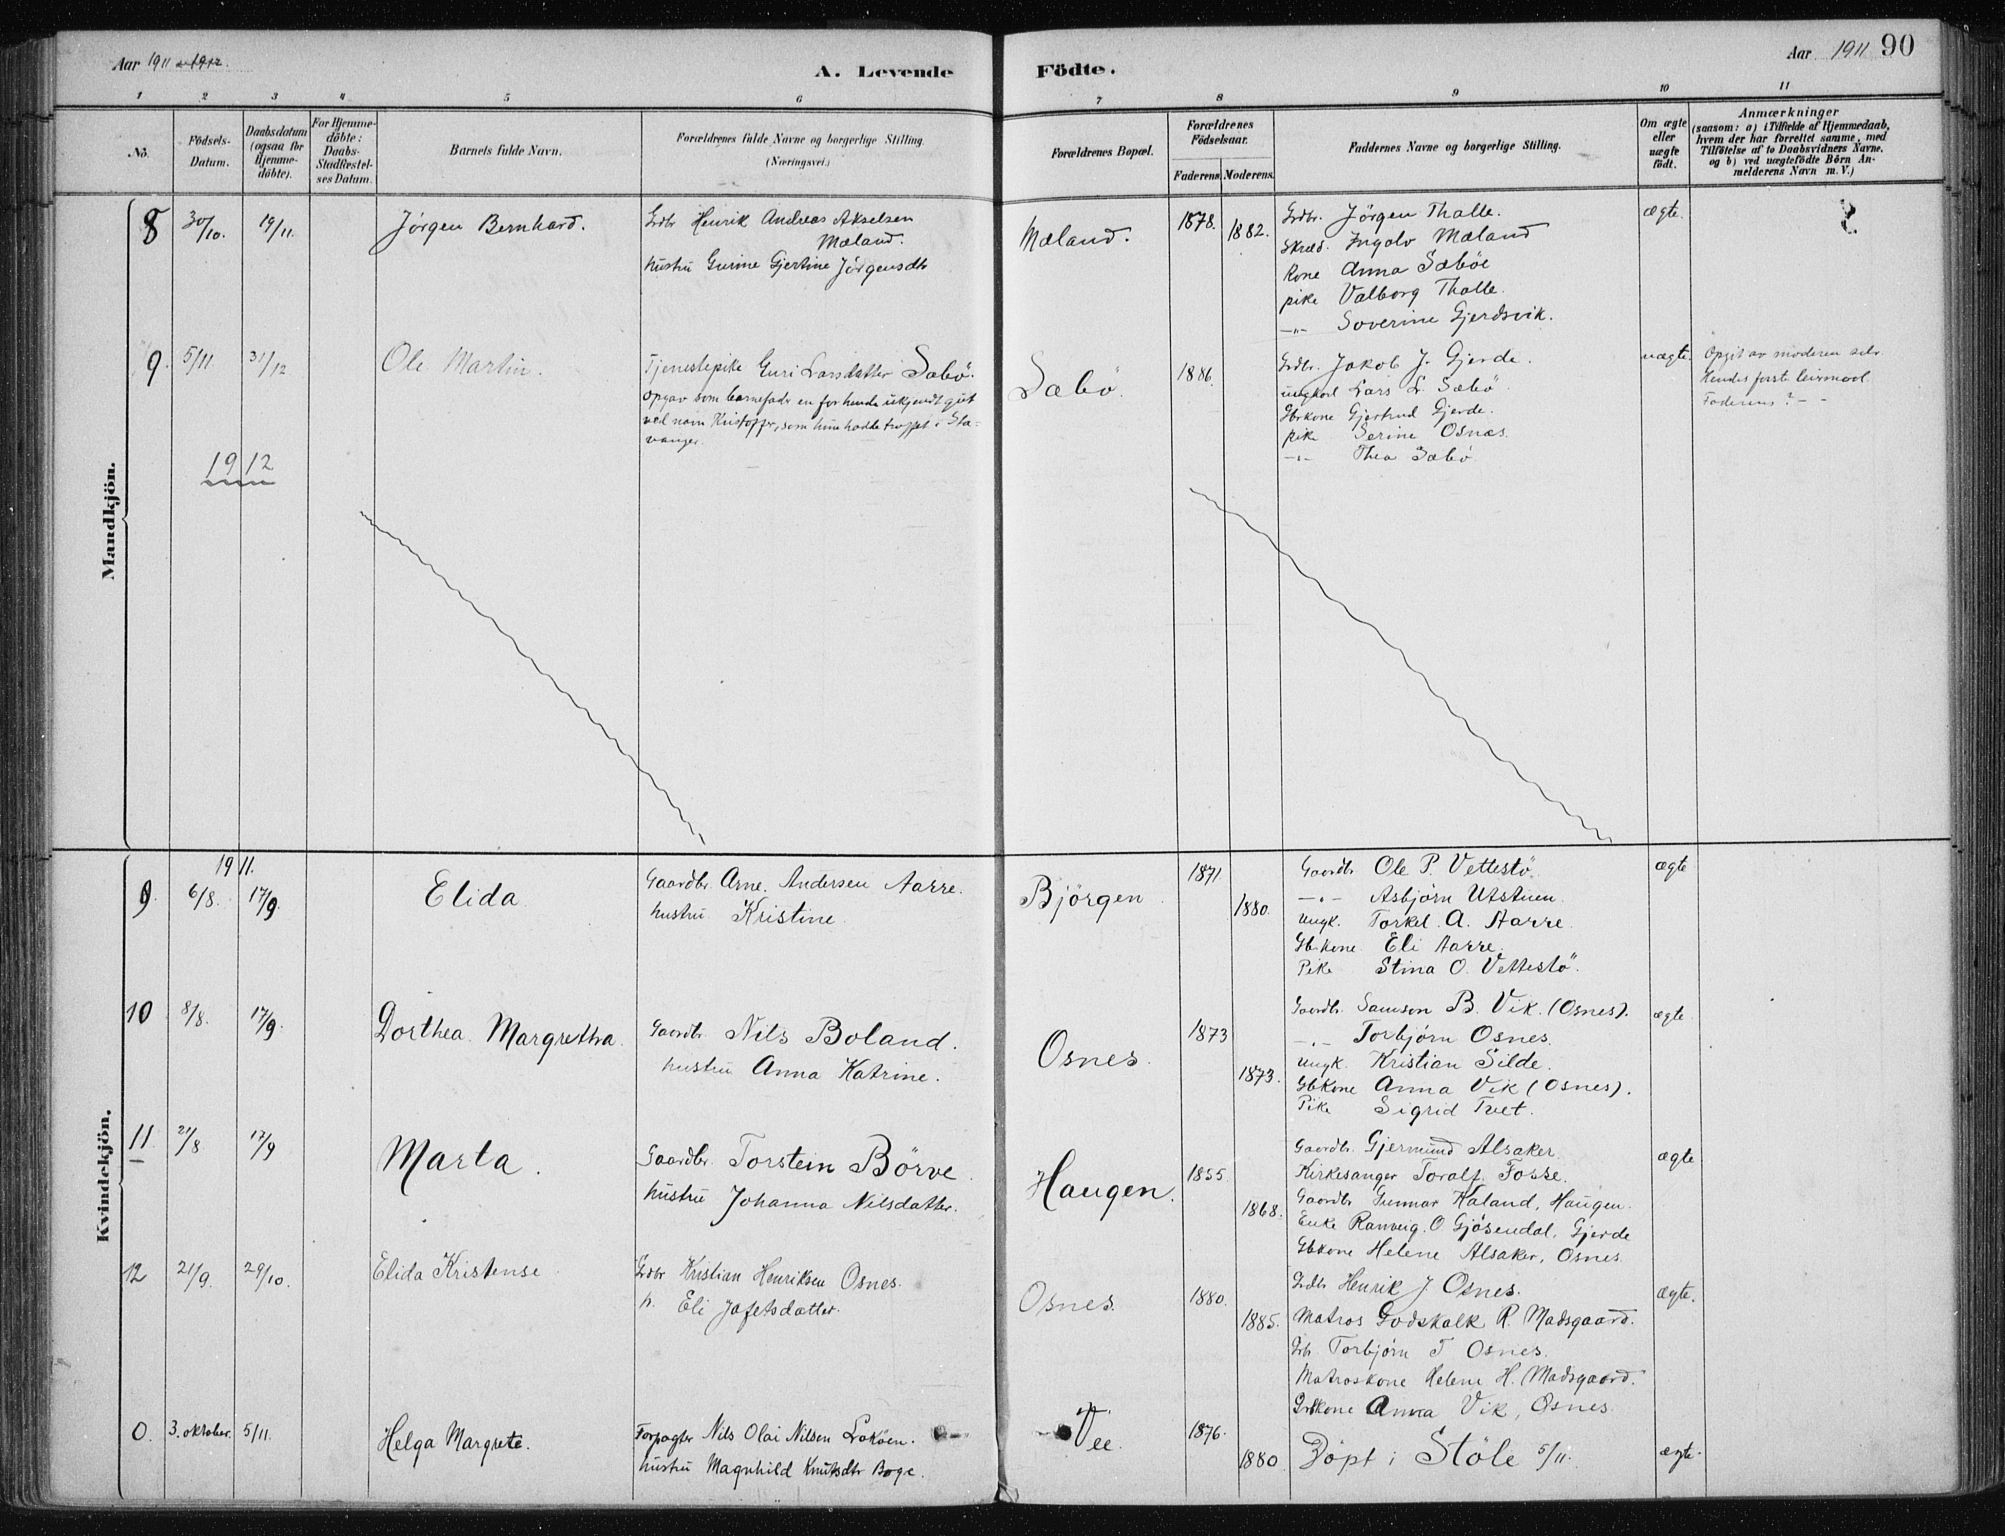 Aar 1911 - 1912.
A. Levende
Födte.
Aar 1911 90
1 2 3 4 5 6 7 8 9 10 11
No.
Födsels-
Datum.
Daabsdatum
(ogsaa for
Hjemme-
döbte).
For Hjemme-
döbte:
Daabs-
Stadfæstel-
ses Datum.
Barnets fulde Navn.
Forældrenes fulde Navne og borgerlige Stilling.
(Næringsvei.)
Forældrenes Bopæl.
Forældrenes
Födselsaar.
Faderens. Moderens.
Faddernes Navne og borgerlige Stilling.
Om ægte
eller
uægte
födt.
Anmærkninger
(saasom: a) i Tilfælde af Hjemmedaab,
hvem der har forrettet samme, med
Tilföielse af to Daabsvidners Navne,
og b) ved uægtefödte Börn An-
melderens Navn m. V.)
Mandkjön.
8 30/10. 19/11. Jørgen Bernhard.
Grdbr Henrik Andreas Akselsen
Mæland.
hustru Gurine Gjertine Jørgensdtr
Mæland. 1878. 1882.
Grdbr. Jørgen Thalle.
Skræd. Ingolv Mæland
Kone Anna Sæbøe
pike Valborg Thalle.
—"— Soverine Gjerdsvik.
ægte.
9 5/11 31/12 Ole Martin.
Tjenestepike Guri Larsdatter Sæbö.
opgav som barnefadr en for hende ukjendt gut
ved navn Kristoffer, som hun hadde truffet i Sta-
vanger.
Sæbö. 1886.
Grdbr. Jakob J. Gjerde.
ungkarl Lars L. Sæbö
Gbrkone Gjertrud Gjerde.
pike Serine Osnæs.
—"— Thea Sæbö
uægte.
Opgit av moderen selv.
Hendes første leiermaal.
Faderens? - -
1912
Kvindekjön.
1911.
9 6/8. 17/9. Elida
Gaardbr. Arne. Andersen Aarre.
hustru Kristine
Björgen 1871 1880.
Gaardb. Ole P. Vettestö.
—"— Asbjørn Utstuen.
Ungk. Torkel. A. Aarre.
Gb kone Eli Aarre.
Pike Stina O. Vettestö.
ægte
10 8/8. 17/9. Dorthea Margretha.
Gaardbr Nils Boland.
hustru Anna Katrine.
Osnes. 1873 1873.
Gaardb. Samson B. Vik. (Osnes).
—"— Torbjørn Osnes.
Ungk. Kristian Silde.
Gbkone Anna Vik (Osnes).
Pike Sigrid Tvet.
ægte.
11 21/8 17/9 Marta.
Gaardbr. Torstein Börve
hustru Johanna Nilsdatter.
Haugen. 1855 1868.
Gaardb. Gjermund Alsaker.
Kirkesanger Toralf Fosse.
Gaardb Gunnar Haland, Haugen.
Enke Ranveig. O. Gjösendal, Gjerde
Gbkone Helene Alsaker, Osnes.
ægte
12 21/9. 29/10. Elida Kristense
Grdbr Kristian Henriksen Osnes.
h. Eli Jafetsdatter.
Osnes. 1880. 1885.
Grdb Henrik J Osnes.
Matros Godskalk R. Madsgaard.
Grbr. Torbjørn T Osnes.
Matroskone Helene H. Madsgaard.
Grbkone Anna Vik, Osnes.
ægte.
0. 3. oktober. 5/11. Helga Margrete.
Forpagter Nils Olai Nilsen Lokøen.
hustru Magnhild Knutsdtr Boge.
Vee. 1876. 1880
Döpt i Stöle 5/11.
ægte.